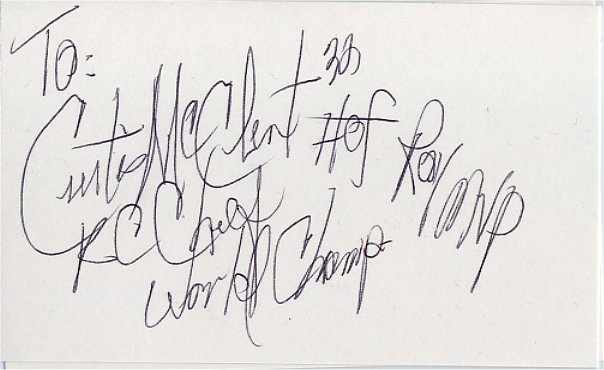 To:
Curtis McClint 32 HOF ROY MVP
KC Chief
World Champ